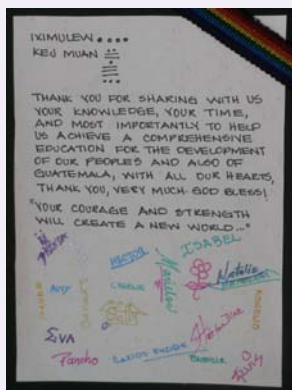 IXIMULEW
KEJ MUAN
THANK YOU FOR SHARING WITH US
YOUR KNOWLEDGE, YOUR TIME,
AND MOST IMPORTANTLY TO HELP
US ACHIEVE A COMPREHENSIVE
EDUCATION FOR THE DEVELOPMENT
OF OUR PEOPLES AND ALSO OF
GUATEMALA, WITH ALL OUR HEARTS,
THANK YOU, VERY MUCH. GOD BLESS!
"YOUR COURAGE AND STRENGTH
WILL CREATE A NEW WORLD..."
ISABEL
HECTOR
Natalia
Marilena
EVA
Pancho